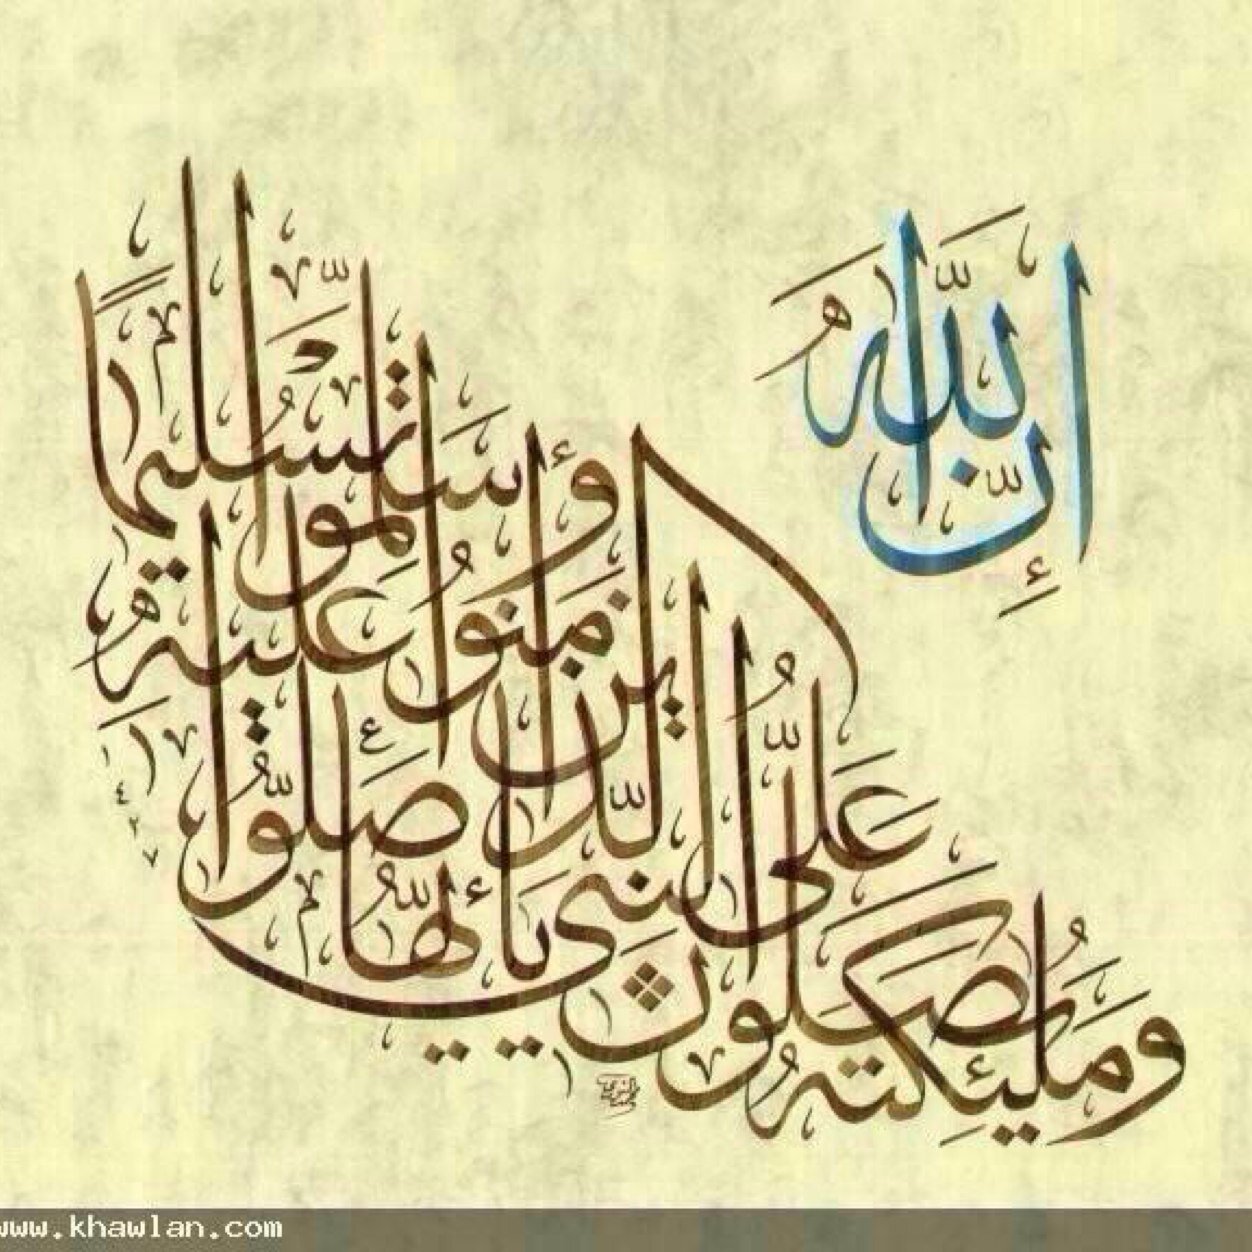 إِنَّ اللَّهَ
وَمَلَٰئِكَتَهُ يُصَلُّونَ
عَلَى النَّبِيِّ يَا أَيُّهَا
الَّذِينَ آمَنُوا صَلُّوا
عَلَيْهِ وَسَلِّمُوا تَسْلِيمًا
١٤٢٧
www.khawlan.com